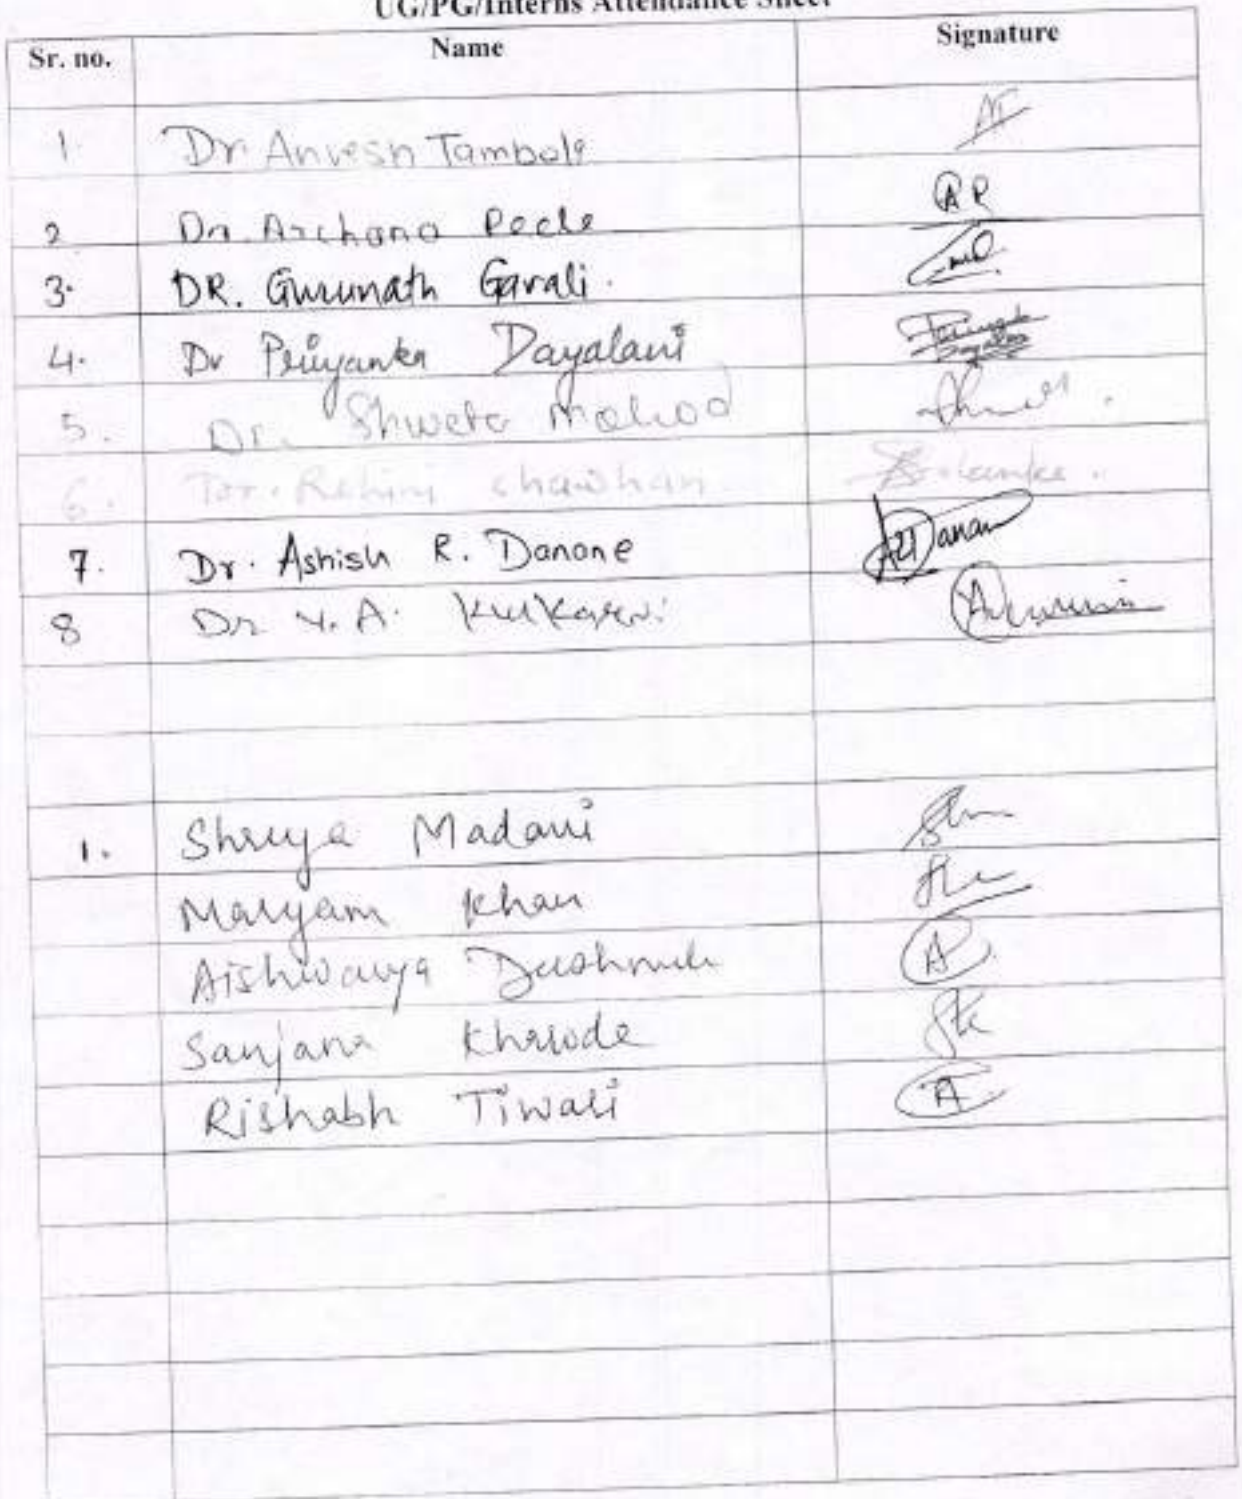 UG/PG/Interns Attendance Sheet
Sr. no. Name Signature
1. Dr Anvesh Tambole AT
2 Dr. Archana Peele AP
3. DR. Gurunath Gavali.
4. Dr Priyanka Dayalani Priyanka Dayalani
5. Dr. Shweta Mahod
6. Dr. Rohini chawhan
7. Dr. Ashish R. Danone ARDanan
8 Dr Y. A. Kulkarni
1. Shreya Madavi
Maryam Khan
Aishwarya Deshmukh A
Sanjana Khawde
Rishabh Tiwari